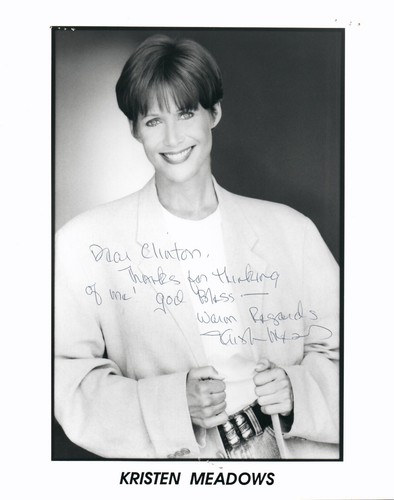 Dear Clinton,
Thanks for thinking
of me! God Bless —
Warm Regards
KRISTEN MEADOWS